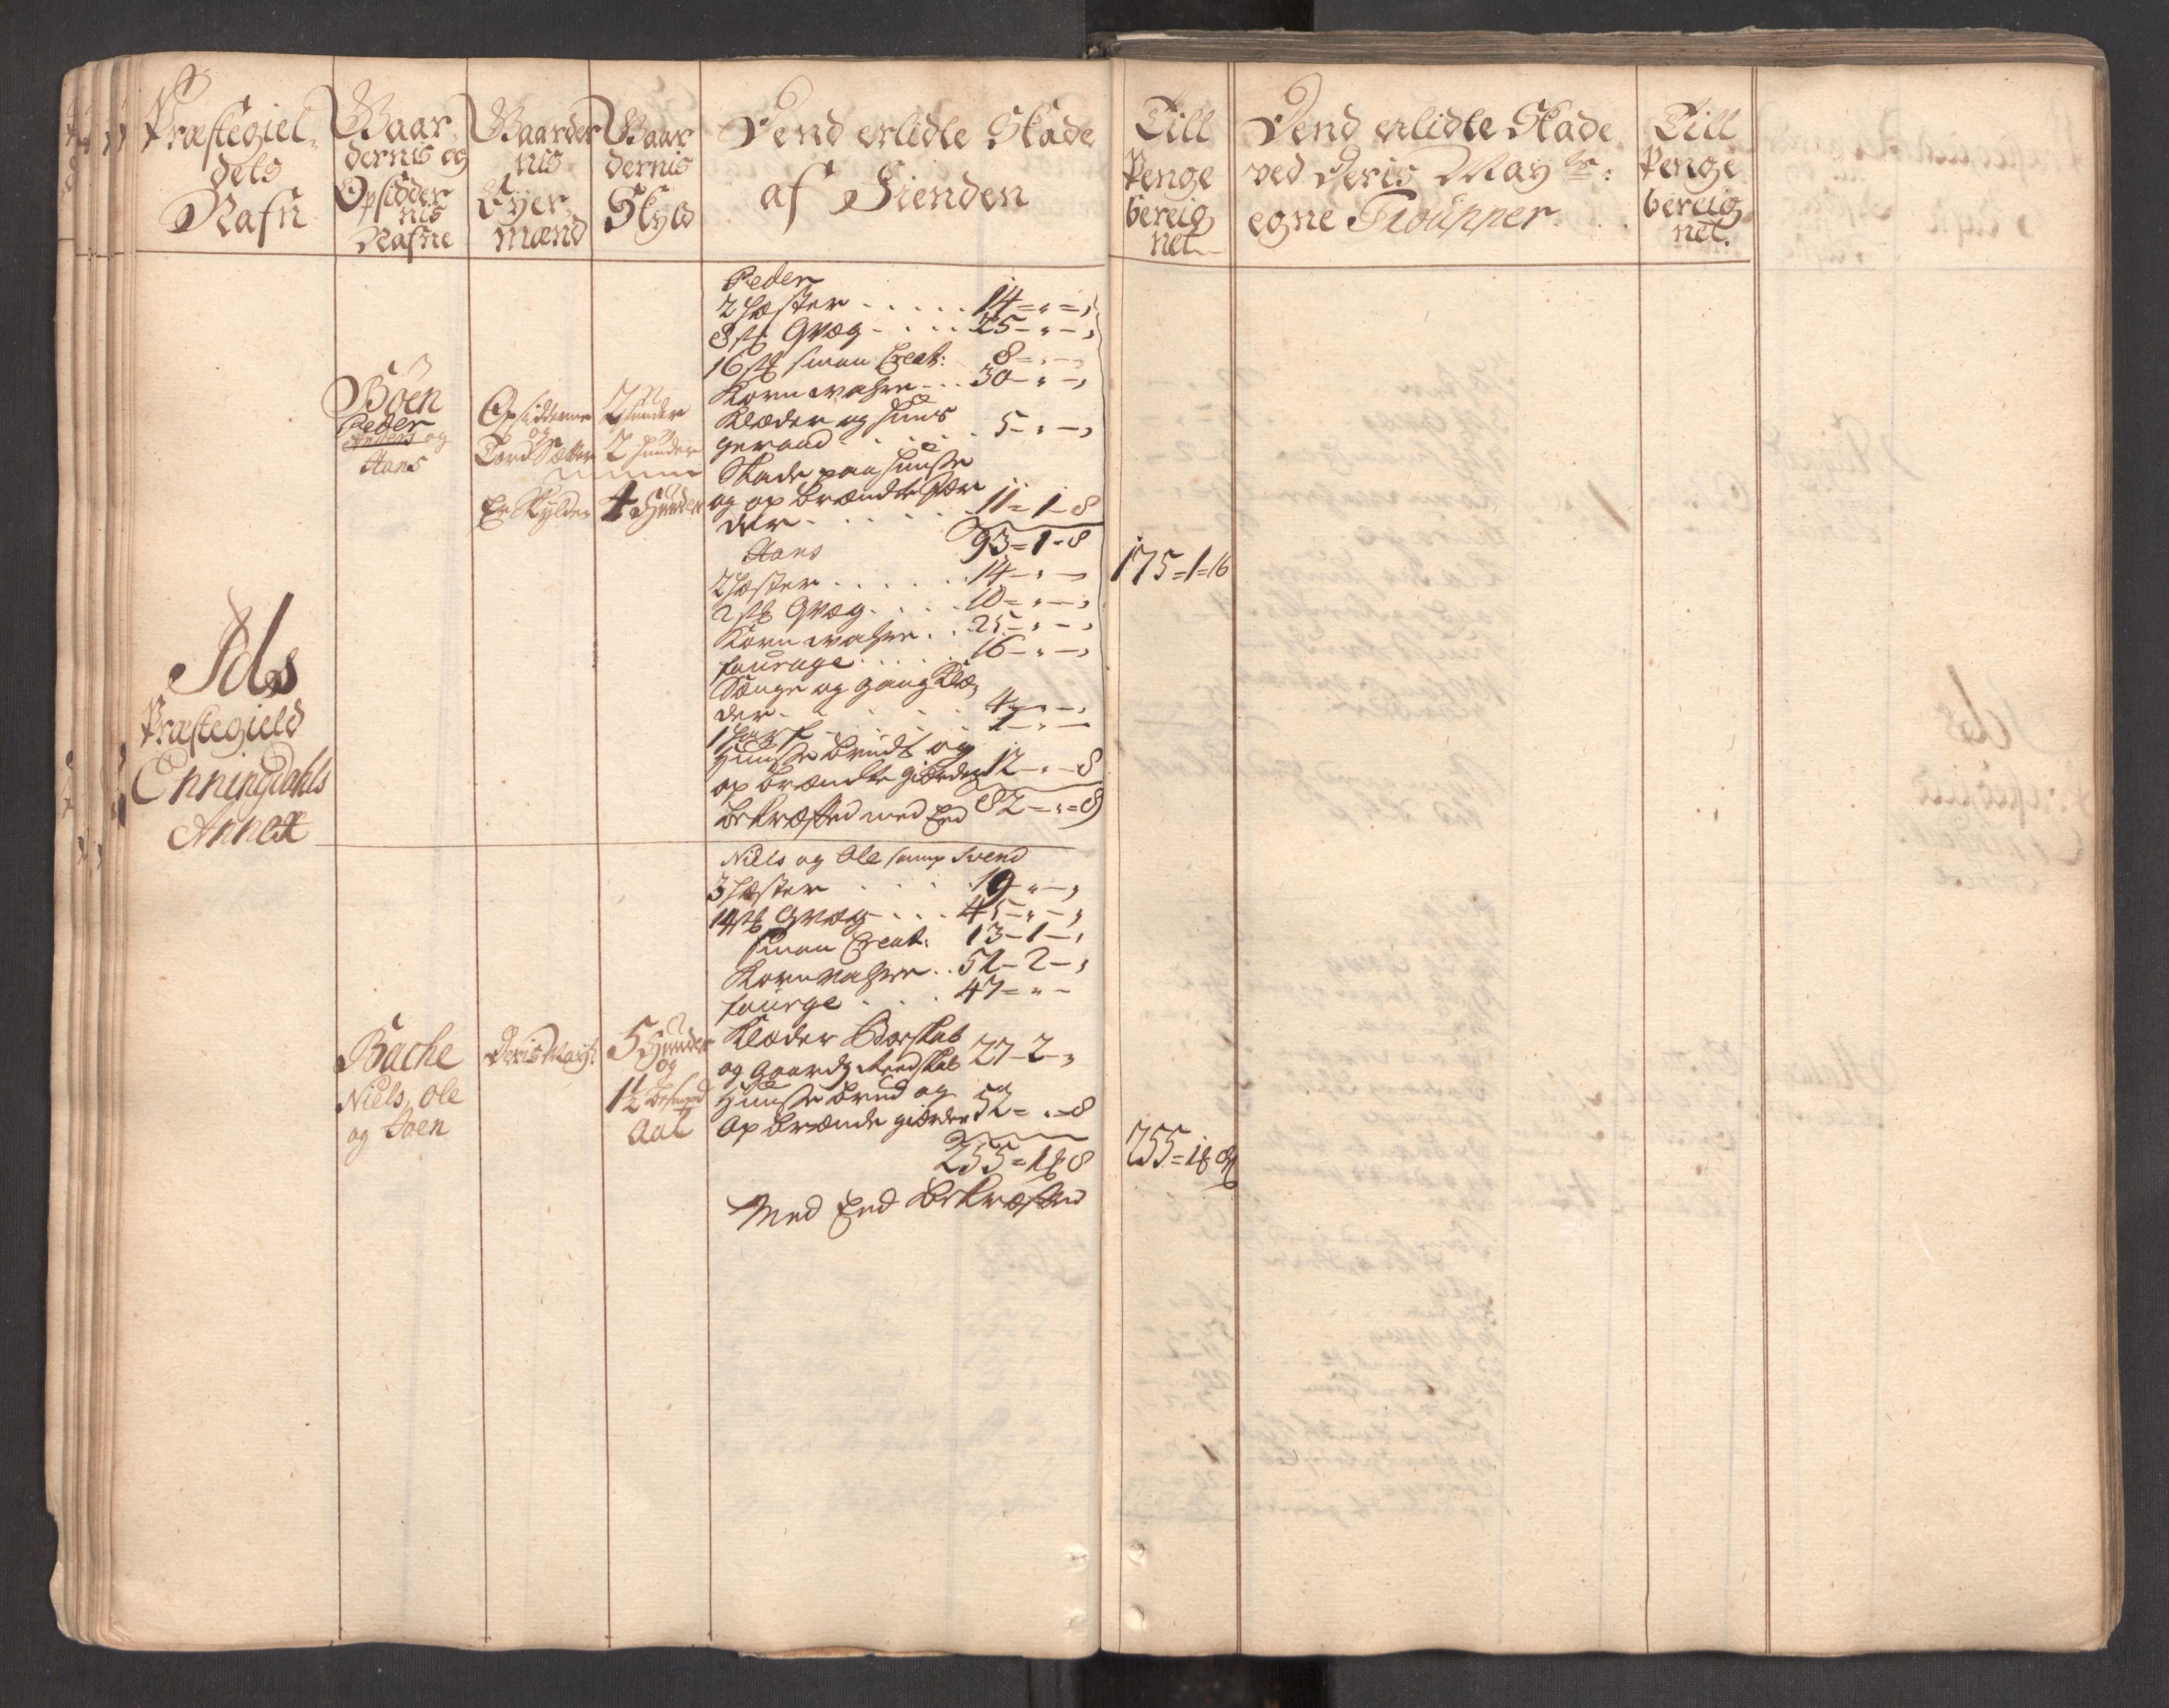 Præstegiel-
dets
Nafn
Gaar
dernis og
Opsidder
nis
Nafne
Gaarder
nis
Eyer
mænd
Gaar
dernis
Skyld
Dend erlidte Skade
af Fienden
Till
Penge
bereig
net
Dend erlidte Skade
ved Deris Mayts:
egne Troupper
Till
Penge
bereig
net.
Ids
Præstegield
Enningdahls
Annex
Böen
Peder
og
Hans
Opsidderne
og
Er Skylder
2 Huuder
2 Huuder
4 Huuder
Peder
2 Hæster . . . . . 14 = " = "
8 st Qvæg . . . . 25 - " - "
16 st smaa Creat: 8 - " - "
Korn wahre . . 30 - " - "
Klæder og Huus
geraad . . . . . 5 - " - "
Skade paa Huusse
og op brændte Gier
der . . . . . 11 = 1 - 8
93 = 1 - 8
Hans
2 Hæster . . . . . 14 - " - "
2 st Qvæg . . . . 10 = " - "
Korn wahre . . 25 - " - "
fourage . . . . . 16 - " - "
Sænge og gang Klæ-
der . . . . . 4 - " - "
1 . . . . . 1 - " -
Huusse brudt og
op brændte gierder 12 - " - 8
82 = " = 8
bekræfted med Eed
175 = 1 = 16
Bache
Niels, Ole
og
Deris Mayt:
5 Huuder
og
1½ Bismpd
Aal
Niels og Ole samp Svend
3 Hæster . . . . 19 - " - "
14 st Qvæg . . . 45 - " - "
smaa Creat: 13 - 1 - "
Korn Wahre . . 51 - 2 - "
fourge . . . . 47 = " -
Klæder Boeskab
og Gaardz Reedskab 27 - 2 - "
Huusse brud og
op brænde gierder 52 = " - 8
255 = 1 8
Med Eed bekræfted
255 = 1 8